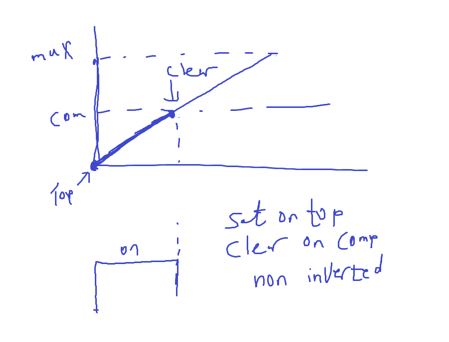 max
clear
com
Top
on
set on top
clear on comp
non inverted